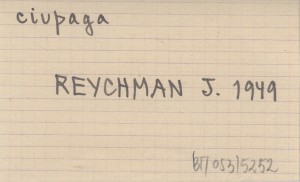 ciupaga
REYCHMAN J. 1949
BT/053/5252